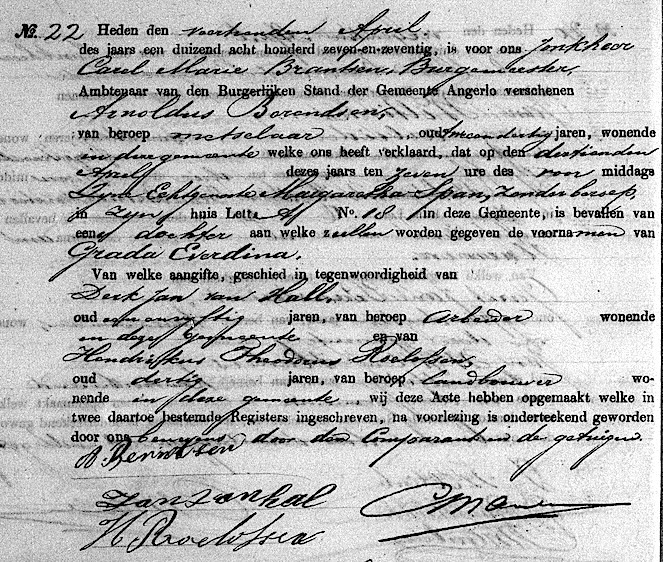 No. 22 Heden den veertienden April
des jaars een duizend acht honderd zeven-en-zeventig, is voor ons Jonkheer
Carel Marie Brantsen, Burgemeester,
Ambtenaar van den Burgerlijken Stand der Gemeente Angerlo verschenen
Arnoldus Berendsen,
van beroep metselaar oud jaren, wonende
in deze gemeente welke ons heeft verklaard, dat op den dertienden
April dezes jaars ten zeven ure des voor middags
Zijne Echtgenoote Margaretha Span, zonder beroep,
in zijn huis Letta A No. 18 in deze Gemeente, is bevallen van
eene dochter aan welke zullen worden gegeven de voornamen van
Grada Everdina.
Van welke aangifte, geschied in tegenwoordigheid van
Derk Jan van Hall,
oud een en vijftig jaren, van beroep Arbeider wonende
in deze gemeente en van
Hendrikus Theodorus Roelofsen,
oud dertig jaren, van beroep landbouwer wo-
nende in deze gemeente, wij deze Acte hebben opgemaakt welke in
twee daartoe bestemde Registers ingeschreven, na voorlezing is onderteekend geworden
door ons benevens door den Comparant en de getuigen.
A. Berendsen
Jan van hal
H. Roelofsen